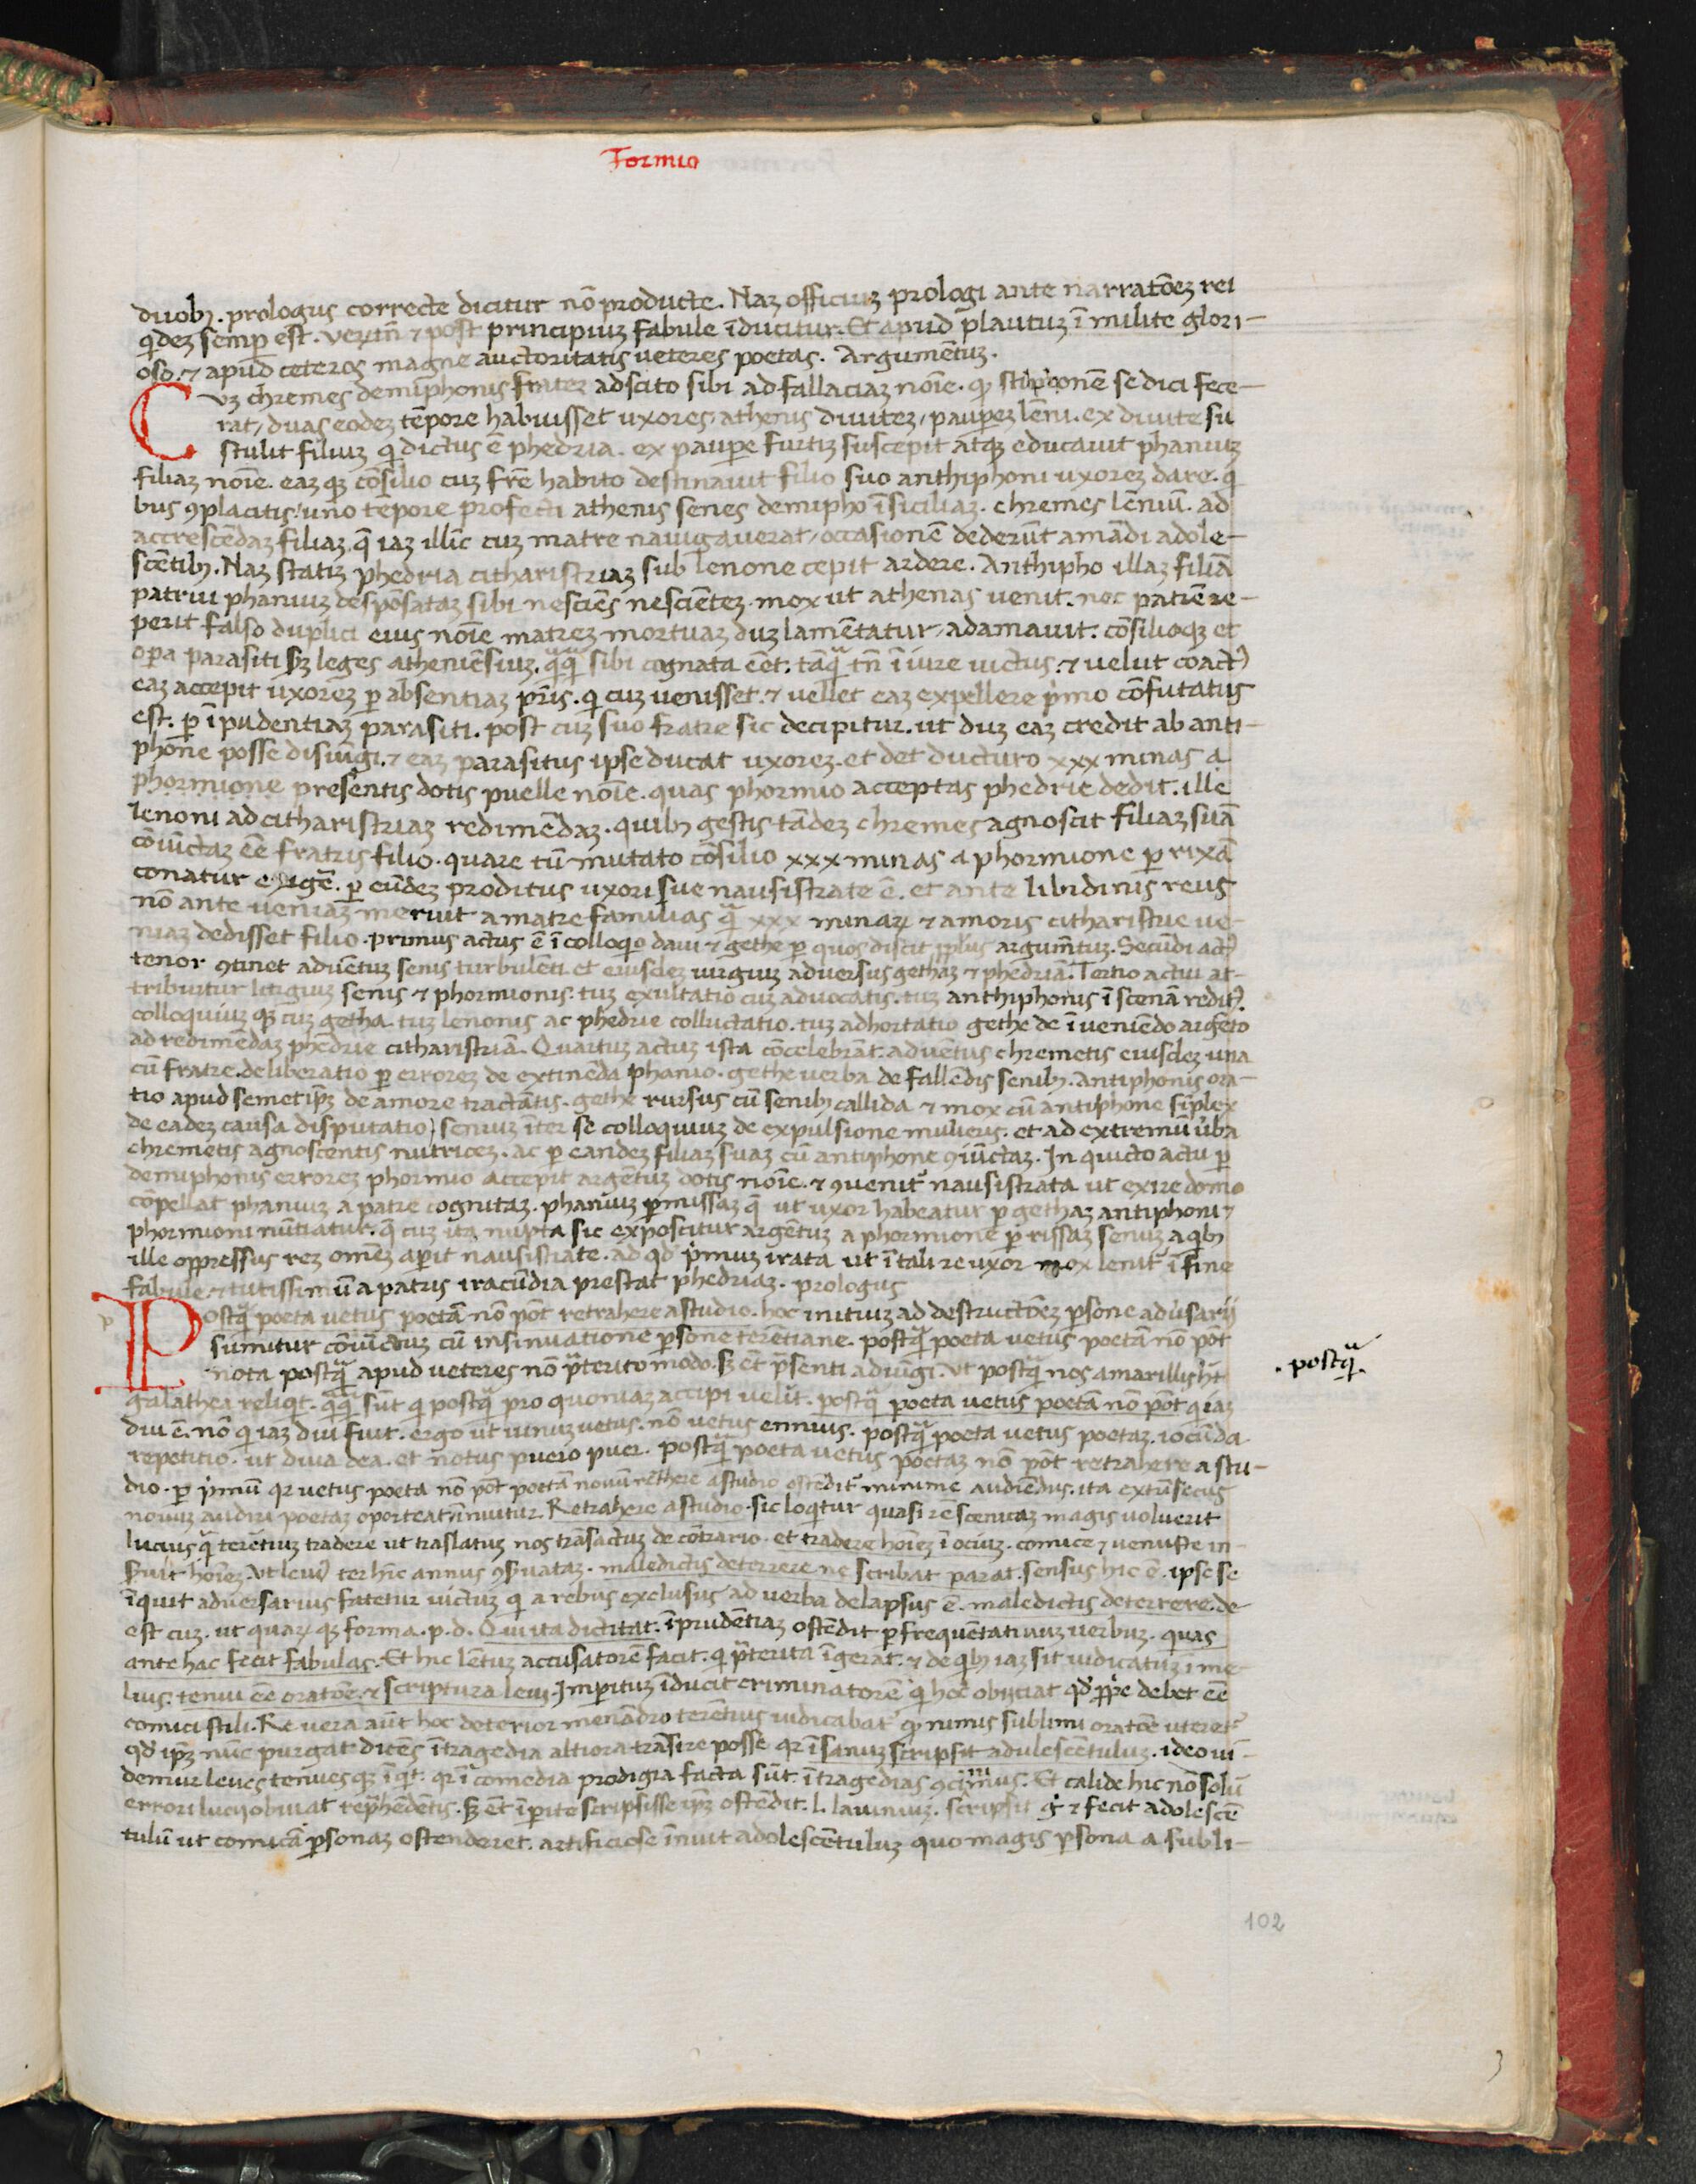 Formio
duobꝫ. prologus correcte dicitur nō producte. Naꝫ officiuꝫ prologi ante narratōeꝫ rei
qͥdeꝫ semꝑ est. veꝝtn̄ ⁊ post principiuꝫ fabule īducitur. Et apud plautuꝫ ī milite glori-
oso. ⁊ apud ceteros magne auctoritatis ueteres poetas. Argumētuꝫ.
Cuꝫ chremes demiphonis frater adscito sibi ad fallaciaꝫ noīe. qͦ stilponē se dici fece-
rat, duas eodeꝫ tēpore habuisset uxores, athenis diuiteꝫ, pauꝑeꝫ lēni. ex diuite su
stulit filiuꝫ qͥ dictus ē phedria. ex pauꝑe furtiꝫ suscepit atqꝫ educauit phaniuꝫ
filiaꝫ noīe. eaꝫ qꝫ cōsilio cuꝫ fr̄e habito destinauit filio suo anthiphoni uxoreꝫ dare. qͥ
bus ꝯplacitis uno tēpore profecti athenis senes demipho ī siciliaꝫ. chremes lēniū. ad
accrescēdaꝫ filiaꝫ, q̄ iaꝫ illīc cuꝫ matre nauigauerat, occasionē dederūt amādi adole-
scētibꝫ. Naꝫ statiꝫ phedria citharistriaꝫ sub lenone cepit ardere. Anthipho illaꝫ filiā
patrui phaniuꝫ despōsataꝫ sibi nesciēs nesciēteꝫ. mox ut athenas uenit. nec patrē re-
perit falso duplici eius noīe matreꝫ mortuaꝫ duꝫ lamētatur, adamauit. cōsilioqꝫ et
oꝑa parasiti sꝫ leges atheniēsiuꝫ. qͣqͣ sibi cognata eēt. tāqͣ tn̄ ī iure uictus. ⁊ uelut coactꝰ
eaꝫ accepit uxoreꝫ ꝑ absentiaꝫ pr̄is. qͥ cuꝫ uenisset. ⁊ uellet eaꝫ expellere pͥmo cōfutatus
est. ꝑ īpudentiaꝫ parasiti. post cuꝫ suo fratre sic decipitur. ut duꝫ eaꝫ credit ab anti-
phone posse disiūgi. ⁊ eaꝫ parasitus ipse ducat uxoreꝫ. et det ducturo xxx minas a
phormione presentis dotis puelle noīe. quas phormio acceptas phedrie dedit. ille
lenoni ad citharistriaꝫ redimēdaꝫ. quibꝫ gestis tādeꝫ chremes agnoscit filiaꝫ suā
cōiūctaꝫ eē fratris filio. quare tū mutato cōsilio xxx minas a phormione ꝑ rixā
conatur exigē. ꝑ eūdeꝫ proditus uxori sue nausistrate ē. et ante libidinis reus
nō ante ueniaꝫ meruit a matre familias qͣ xxx minaꝝ ⁊ amoris citharistrie ue-
niaꝫ dedisset filio. primus actus ē ī colloqͥo daui ⁊ gethe ꝑ quos discit pplus argum̄tuꝫ. Secūdi actꝰ
tenor ꝯtinet aduētuꝫ senis turbulēti et eiusdeꝫ iurgiuꝫ aduersus gethaꝫ ⁊ phedriā. Tertio actui at-
tribuitur litigiuꝫ senis ⁊ phormionis. tuꝫ exultatio cuꝫ aduocatis. tuꝫ anthiphonis ī scenā reditꝰ.
colloquiuꝫ qꝫ cuꝫ getha. tuꝫ lenonis ac phedrie colluctatio. tuꝫ adhortatio gethe de īueniēdo argēto
ad redimēdaꝫ phedrie citharistriā. Quartuꝫ actuꝫ ista cōcelebrāt. aduētus chremetis eiusdeꝫ una
cū fratre. deliberatio ꝑ erroreꝫ de extinēda phanio. gethe uerba de fallēdis senibꝫ. Antiphonis ora-
tio apud semetip̄ꝫ de amore tractātis. gethe rursus cū senibꝫ callida ⁊ mox cū antiphone sīplex
de eadeꝫ causa disputatio, senuꝫ īter se colloquiuꝫ de expulsione mulieris. et ad extremū ūba
chremetis agnoscentis nutriceꝫ. ac ꝑ eandeꝫ filiaꝫ suaꝫ cū antiphone ꝯiūctaꝫ. In quicto actu ꝑ
demiphonis erroreꝫ phormio accepit argētuꝫ dotis noīe. ⁊ ꝯuenit᷑ nausistrata ut exire domo
cōpellat phaniuꝫ a patre cognitaꝫ. phaniuꝫ ꝑmissaꝫ q̄ ut uxor habeatur ꝑ gethaꝫ antiphoni ⁊
phormioni nūtiatur. q̄ cuꝫ ita nupta sic exposcitur argētuꝫ a phormione ꝑ rissaꝫ senuꝫ a qͥbꝫ
ille oppressus reꝫ omēꝫ aꝑit nausistrate. ad qd̄ pͥmuꝫ irata ut ī tali re uxor mox lenit᷑ ī fine
fabule ⁊ tutissimū a patris iracūdia prestat phedriaꝫ. prologus
Postqͣ poeta uetus poetā nō pōt retrahere a studio. hoc initiuꝫ ad destructōeꝫ ꝑsone adūsarij
sumitur cōiūctuꝫ cū insinuatione ꝑsone terētiane. postqͣ poeta uetus poetā nō pōt
nota postqͣ apud ueteres nō p̄terito modo. sꝫ ēt p̄senti adiūgi. ut postqͣ nos amarillis hꝫt
galathea reliqͥt. qͣqͣ sūt qͥ postqͣ pro quoniaꝫ accipi uelīt. postqͣ poeta uetus poetā nō pōt qͥ iaꝫ
diu ē. nō qͥ iaꝫ diu fuit. ergo ut uinuꝫ uetus. nō uetus ennius. postqͣ poeta uetus poetaꝫ. iocūda
repetitio. ut diua dea. et notus puero puer. postqͣ poeta uetus poetaꝫ nō pōt retrahere a stu-
dio. ꝑ pͥmū qr uetus poeta nō pōt poetā nouū reth̄ere a studio ostēdit᷑ minime audiēdus. ita extrīsecus
nouuꝫ audiri poetaꝫ oporteat īnuitur. Retrahere a studio. sic loqͥtur quasi rē scenicaꝫ magis uoluerit
lucius qͣ terētiuꝫ tradere ut traslatuꝫ nos trāsactuꝫ de cōtrario. et tradere hoīeꝫ ī ociuꝫ. comice ⁊ uenuste in-
maledictis deterrere ne scribat parat. sensus hic ē. ipse se
īquit aduersarius fatetur uictuꝫ qͥ a rebus exclusus ad uerba delapsus ē. maledictis deterrere. de-
est cuꝫ. ut quaꝝ qꝫ forma. p. d. Qui ita dictitat. īprudētiaꝫ ostēdit ꝑ frequētatiuuꝫ uerbuꝫ. quas
ante hac fecit fabulas. Et hic lētuꝫ accusatorē facit. qͥ p̄terita īgerat. ⁊ de qͥbꝫ iaꝫ sit iudicatuꝫ ī me-
lius. tenui eē oratōe. ⁊ scriptura leui. Imꝑituꝫ īducit criminatorē qͥ hoc obijciat qd̄ ꝓpͥe debet eē
comici stili. Re uera aūt hoc deterior menādro terētius iudicabat᷑ qͦ nimis sublimi oratōe uteret᷑
qd̄ ip̄ꝫ nūc purgat dicēs ī tragedia altiora trāsire posse qr īsanuꝫ scripsit adulescētuluꝫ. ideo ui-
demur leues tenuesqꝫ īqͥt. qr ī comedia prodigia facta sūt. ī tragedias ꝯcīimus. Et calide hic nō solū
errori lucij obuiat rep̄hēdētis. sꝫ ēt īꝑite scripsisse ip̄ꝫ ostēdit. l. lauiniuꝫ. scripsit gͦ ⁊ fecit adolescē
tulū ut comicā ꝑsonaꝫ ostenderet. artificiose īnuit adolescētuluꝫ quo magis ꝑsona a subli-
. postqͣ.
102